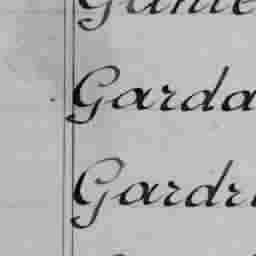 Garda
Gardr